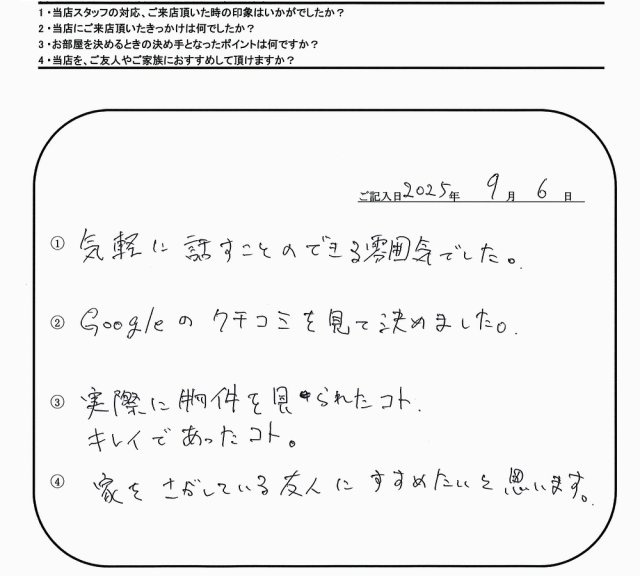 1・当店スタッフの対応、ご来店頂いた時の印象はいかがでしたか？
2・当店にご来店頂いたきっかけは何でしたか？
3・お部屋を決めるときの決め手となったポイントは何ですか？
4・当店を、ご友人やご家族におすすめして頂けますか？
ご記入日2025年 9月 6日
① 気軽に話すことのできる雰囲気でした。
② Googleのクチコミを見て決めました。
③ 実際に物件を見られたコト.
キレイであったコト。
④ 家をさがしている友人にすすめたいと思います。